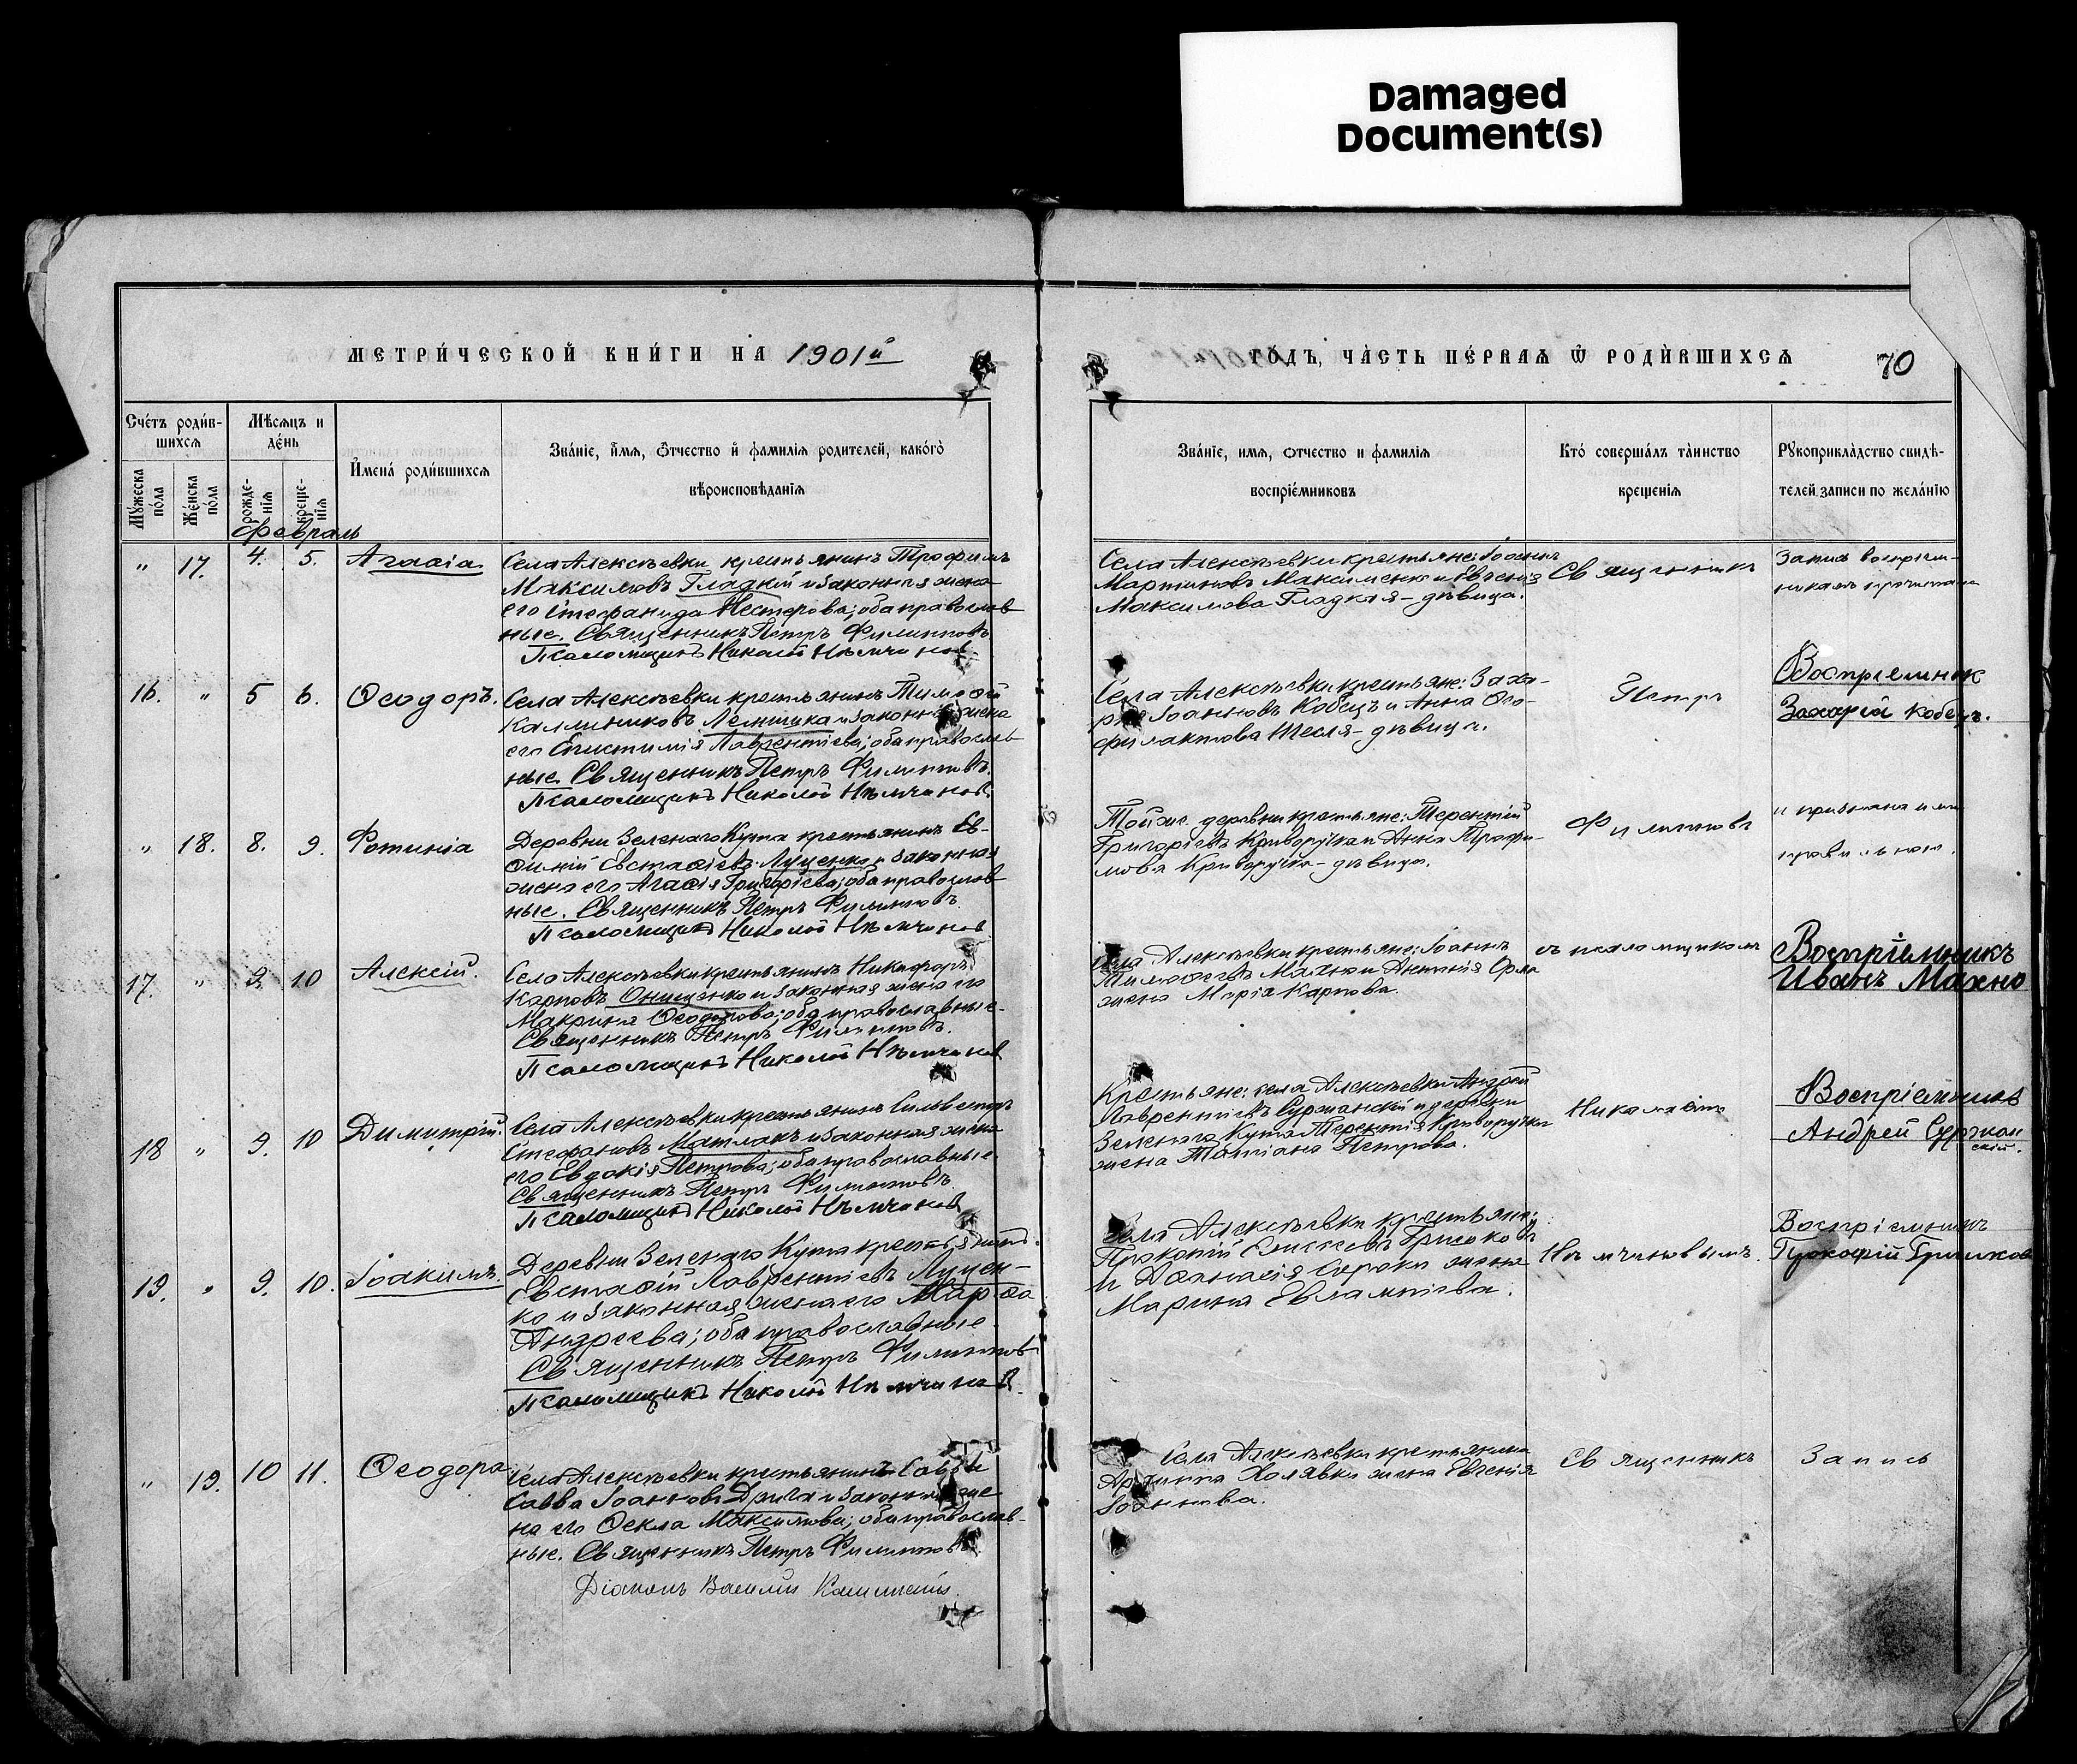 Damaged
Document(s)
МЕТРИ́ЧЕСКОЙ КНИ́ГИ НА 1901й
ГО́ДЪ, ЧА́СТЬ ПЕ́РВАѦ Ѿ РОДИ́ВШИХСѦ
70
Сче́тъ роди́в-
шихсѧ
Мѣ́сѧцъ и
де́нь
И҆мена̀ роди́вшихсѧ
Зва́нїе, и҆́мѧ, ѻ҆́тчество и҆ фами́лїѧ роди́телей, како́гѡ
вѣроисповѣ́данїѧ
Му́жеска по́ла
Же́нска по́ла
рожде́-нїѧ
креще́-нїѧ
Февраль
Зва́нїе, имѧ, отчество и фамилїѧ
воспрїе́мниковъ
Кто́ соверша́лъ та́инство
креще́нїѧ
Рꙋкоприкла́дство свидѣ́-
телей записи по жела́нїю
" 17. 4. 5. Агаѳія.
Села Алексѣевки крестьянинъ Трофимъ
Максимовъ Гладкій и законная жена
его Стефанида Нестерова; оба православ-
ные. Священникъ Петръ Филиповъ
Псаломщикъ Николай Нѣмчинов
Села Алексѣевки крестьяне: Іоаннъ
Мартиновъ Максименко и Евгенія
Максимова Гладкая – дѣвица.
Священникъ
Запись воспріем-
никамъ прочитана
16. " 5 6. Ѳеодоръ.
Села Алексѣевки крестьянинъ Тимоѳей
Каллиниковъ и законная жена
его Епистимія Лаврентіева; оба православ-
ные. Священникъ Петръ Филиповъ.
Псаломщикъ Николай Нѣмчинов.
Села Алексѣевки крестьяне: Заха-
рія Іоанновъ Кобецъ и Анна Ѳео-
филактова Тесля – дѣвица.
Петръ
Воспріемник
Захарій Кобецъ.
" 18. 8. 9. Фотинія
Деревни Зеленаго Кута крестьянинъ Ев-
ѳимій Евстаѳіевъ Луценко и законная
жена его Агаѳія Григоріева; оба православ-
ные. Священникъ Петръ Филиповъ.
Псаломщикъ Николай Нѣмчинов
Той же деревни крестьяне: Терентій
Григоріевъ Криворучка и Анна Трофи-
мова Криворучка – дѣвица.
Филиповъ
и признана ими
правильною.
17. " 9. 10 Алексій.
Села Алексѣевки крестьянинъ Никифоръ
Карповъ Онищенко и законная жена его
Макрина Ѳеодотова; оба православные.
Священникъ Петръ Филиповъ.
Псаломщикъ Николай Нѣмчинов
Села Алексѣевки крестьяне: Іоаннъ
Тимоѳеевъ Махно и Антонія Орла
жена Марія Карпова.
съ псаломщикомъ
Воспріемникъ
Иванъ Махно
18 " 9. 10 Димитрій.
Села Алексѣевки крестьянинъ Сильвестръ
Стефановъ Матлакъ и законная жена
его Евдокія Петрова; оба православные.
Священникъ Петръ Филиповъ
Псаломщикъ Николай Нѣмчинов
Крестьяне: села Алексѣевки Андрей
Лаврентіевъ Суржанскій и деревни
Зеленаго Кута Терентія Криворучки
жена Татіана Петрова.
Николаемъ
Воспріемникъ
Андрей Суржан
скій.
19. " 9. 10. Іоакимъ.
Деревни Зеленаго Кута крестьянинъ
Евстаѳій Лаврентіевъ Луцен-
ко и законная жена его Марѳа
Андреева; оба православные.
Священникъ Петръ Филиповъ
Псаломщикъ Николай Нѣмчинов.
Села Алексѣевки крестьяне:
Прокопій Елисеевъ Гришковъ
и Аѳанасія Сироки жена
Марина Евлампіева.
Нѣмчиновымъ.
Воспріемникъ
Прокофій Гришков
" 19. 10 11. Ѳеодора
Села Алексѣевки крестьянинъ
Савва Іоанновъ Дрига и законная же
на его Ѳекла Максимова; оба православ-
ные. Священникъ Петръ Филиповъ.
Діаконъ Василій
Села Алексѣевки крестьянина
Халявки жена Евгенія
Іоаннова.
Священникъ
Запись